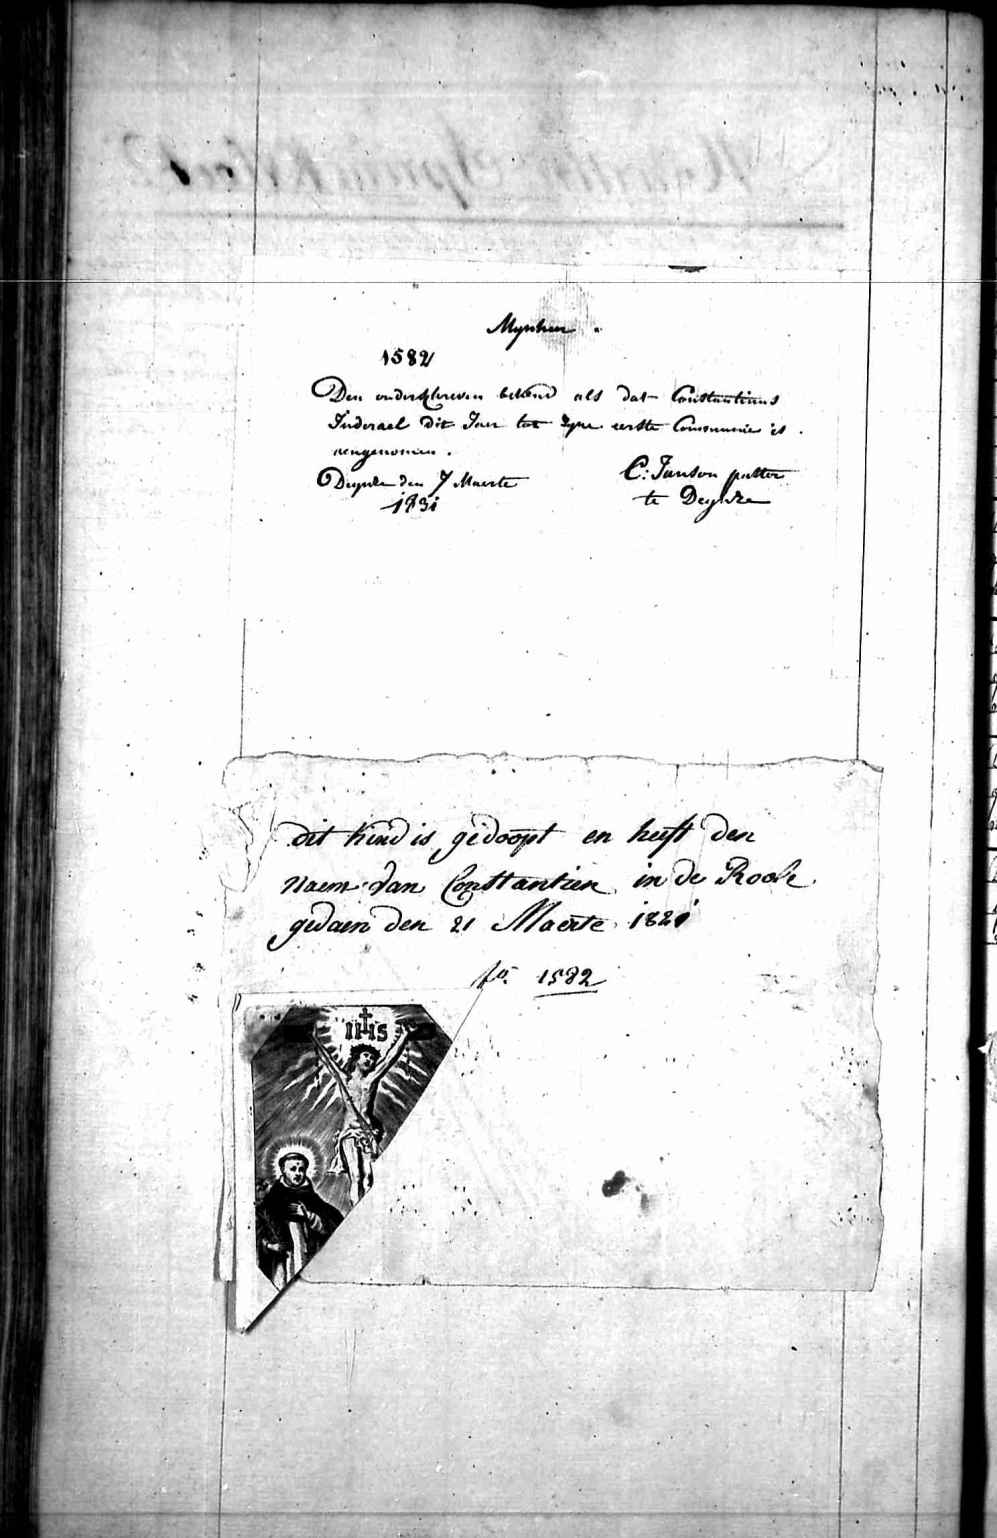 Mynheer.
1582
Den onderschreven bekend als dat Constantinus
Inderael dit Jaer tot zyne eerste Communie is
aengenomen.
Deynze den 7 Maerte
1831
C: Janson paster
te Deynze
dit kind is gedoopt en heeft den
naem van Constantien in de Roode
gedaen den 21 Maerte 1821
fo. 1582
IHS